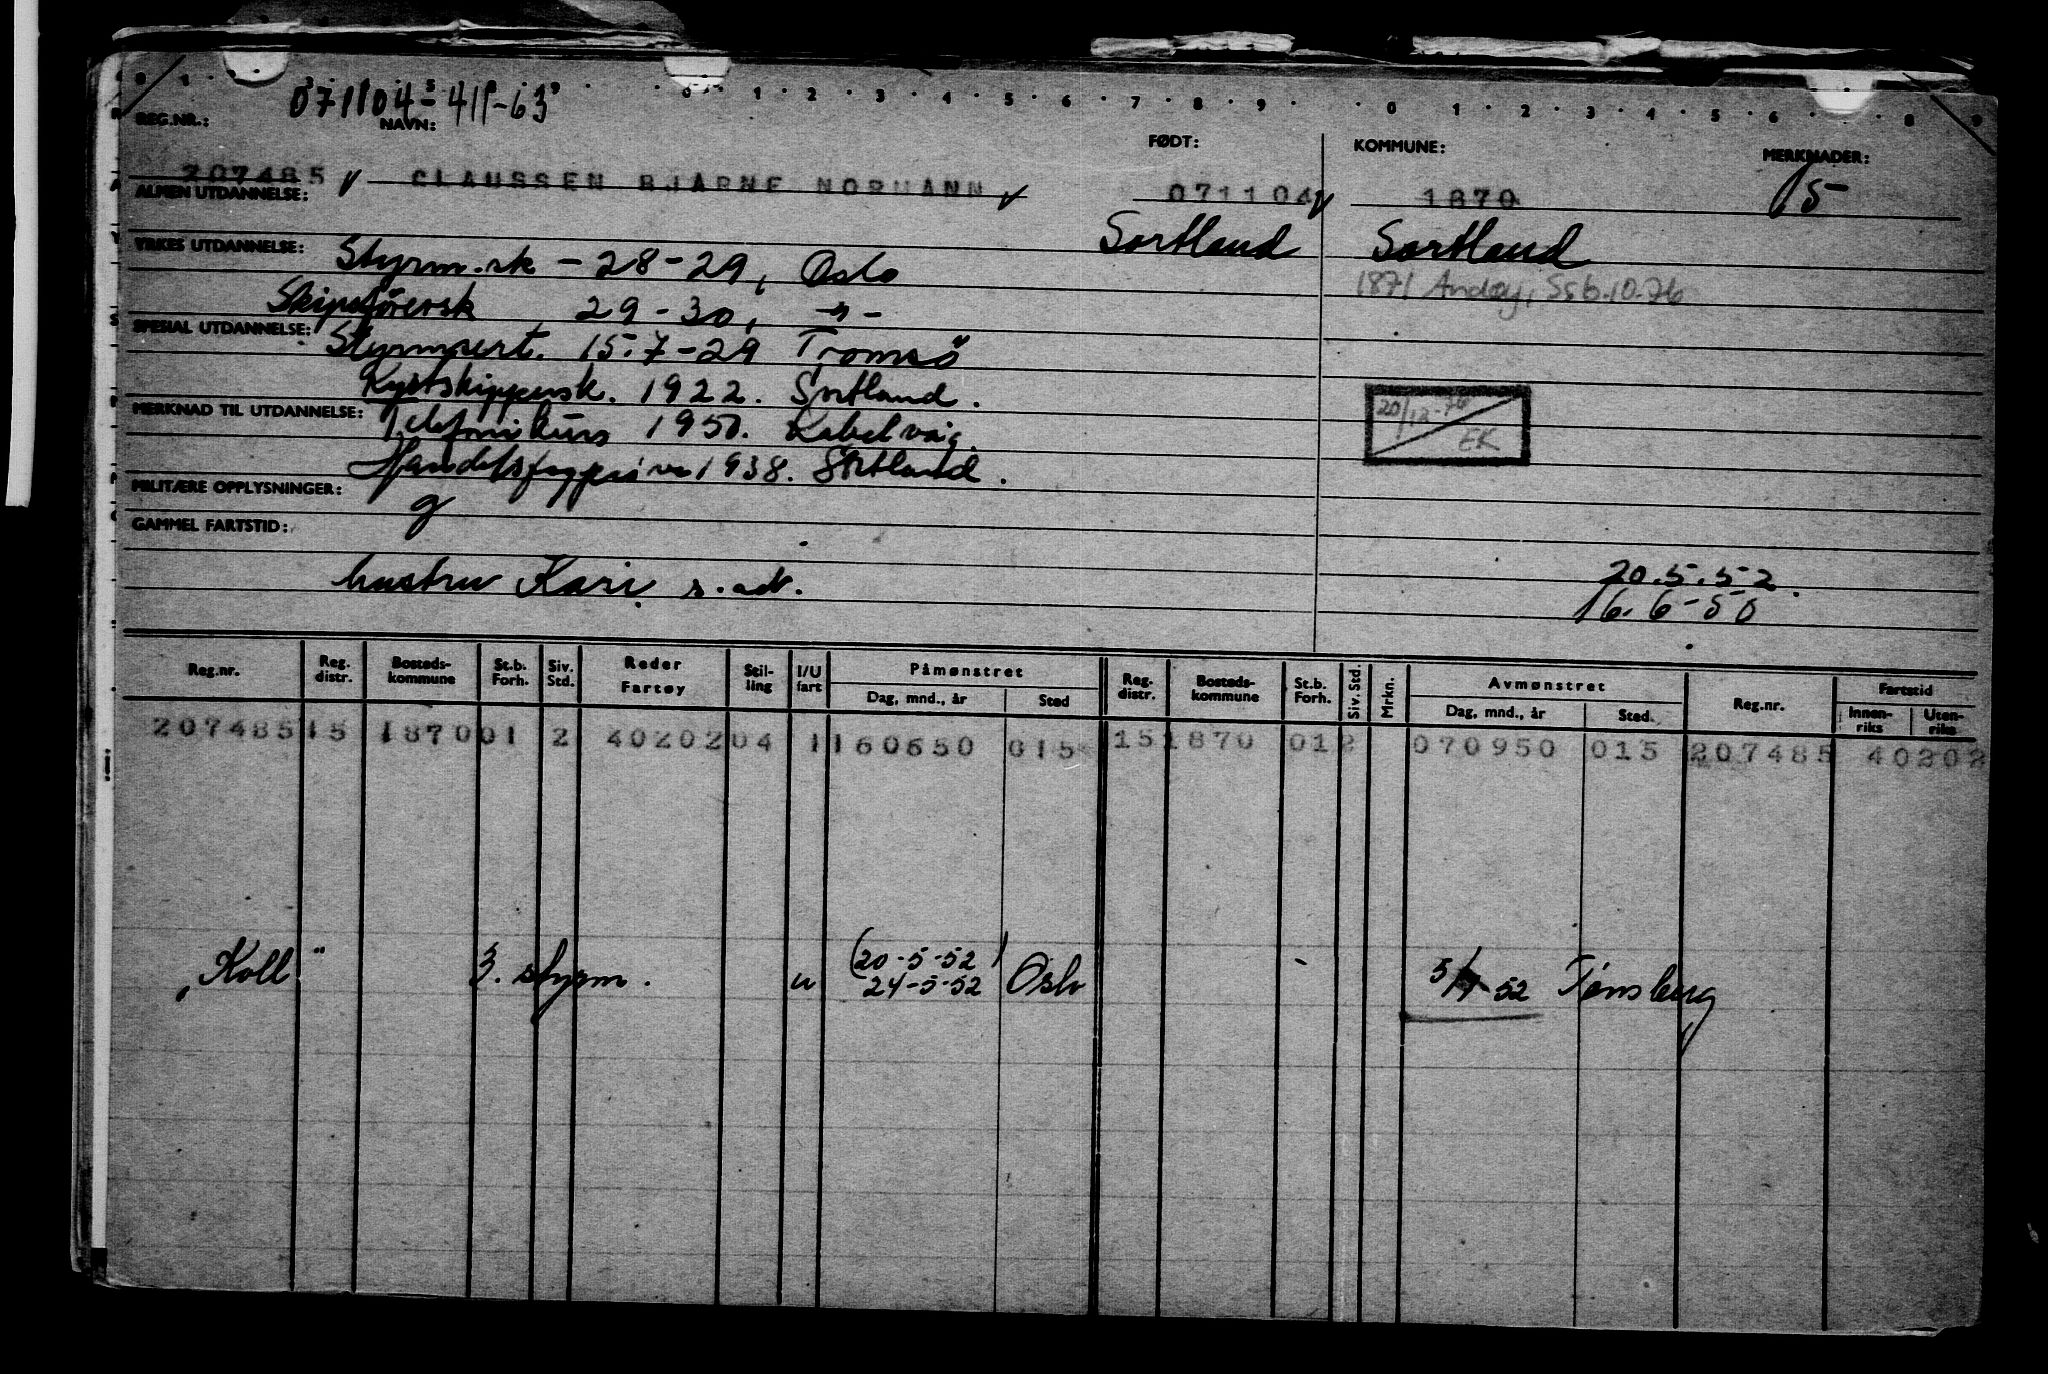 071104-411-63
REG.NR.: NAVN: FØDT: KOMMUNE: MERKNADER:
207485 CLAUSSEN BJARNE NORMANN 071104 1870 15
ALMEN UTDANNELSE:
Sortland Sortland
YRKES UTDANNELSE: Styrm.sk - 28-29, Oslo
1871 Andøy, Ssb.10.76
Skipsførersk 29-30, -"-
SPESIAL UTDANNELSE: Styrmsert. 15.7-29 Tromsö
Kystskippersk. 1922. Sortland.
20/12-76
EK
MERKNAD TIL UTDANNELSE: Telefonikurs 1950. Kabelvåg.
Handelsfagprøve 1938. Sortland.
MILITÆRE OPPLYSNINGER:
g
GAMMEL FARTSTID:
hustru Kari s. adr.
20.5.52.
16.6-50
Reg.nr. Reg. distr. Bosteds-kommune St.b. Forh. Siv. Std. Reder Fartøy Stil-ling I/U fart Påmønstret Dag, mnd., år Sted Reg. distr. Bosteds-kommune St.b. Forh. Siv. Std. Mrkn. Avmønstret Dag, mnd., år Sted. Reg.nr. Fartstid Innen-riks Uten-riks
207485 15 1870 01 2 40202 04 1 160650 015 15 1870 01 2 070950 015 207485 40202
"Koll" 3. styrm. u (20-5-52) 24-5-52 Oslo - 5/7 52 Tønsberg